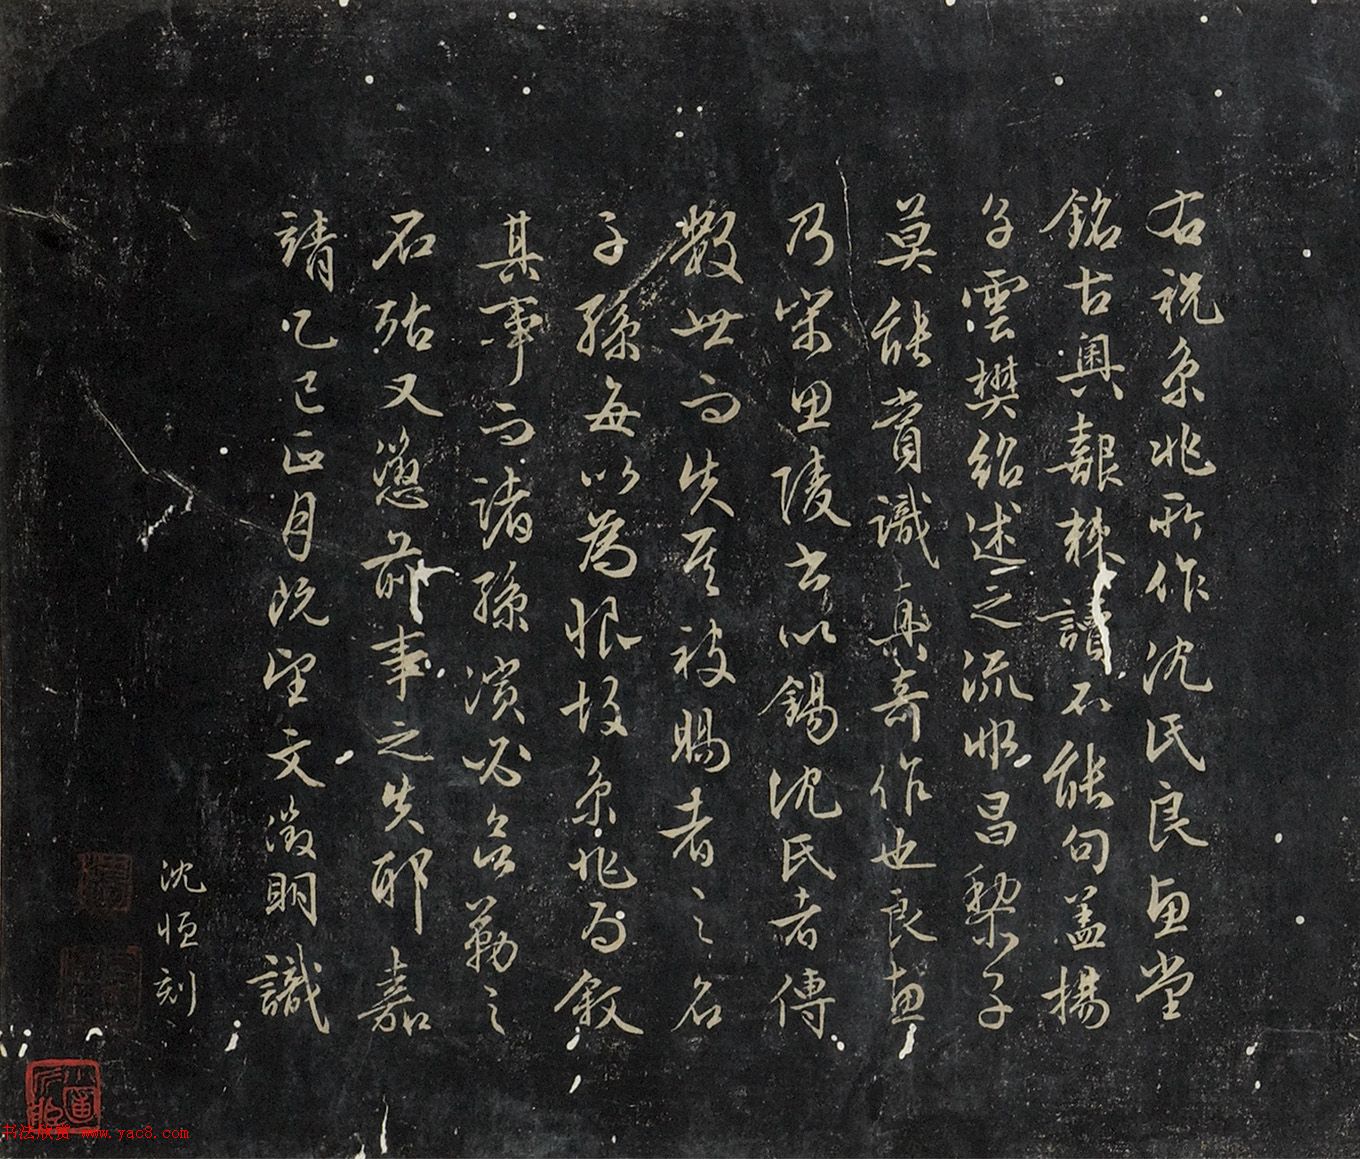 右祝京兆所作沈氏良惠堂
銘古奧艱棘讀不能句蓋揚
子雲樊紹述之流惟昌黎子
莫能賞識真奇作也良惠
乃宋思陵書以錫沈氏者傳
數世而失其被賜者之名
子孫每以為恨故京兆為敘
其事而諸孫濱必勒之
石殆又懲前事之失耶嘉
靖乙巳正月既望文徵明識
沈恒刻
书法欣赏 www.yac8.com